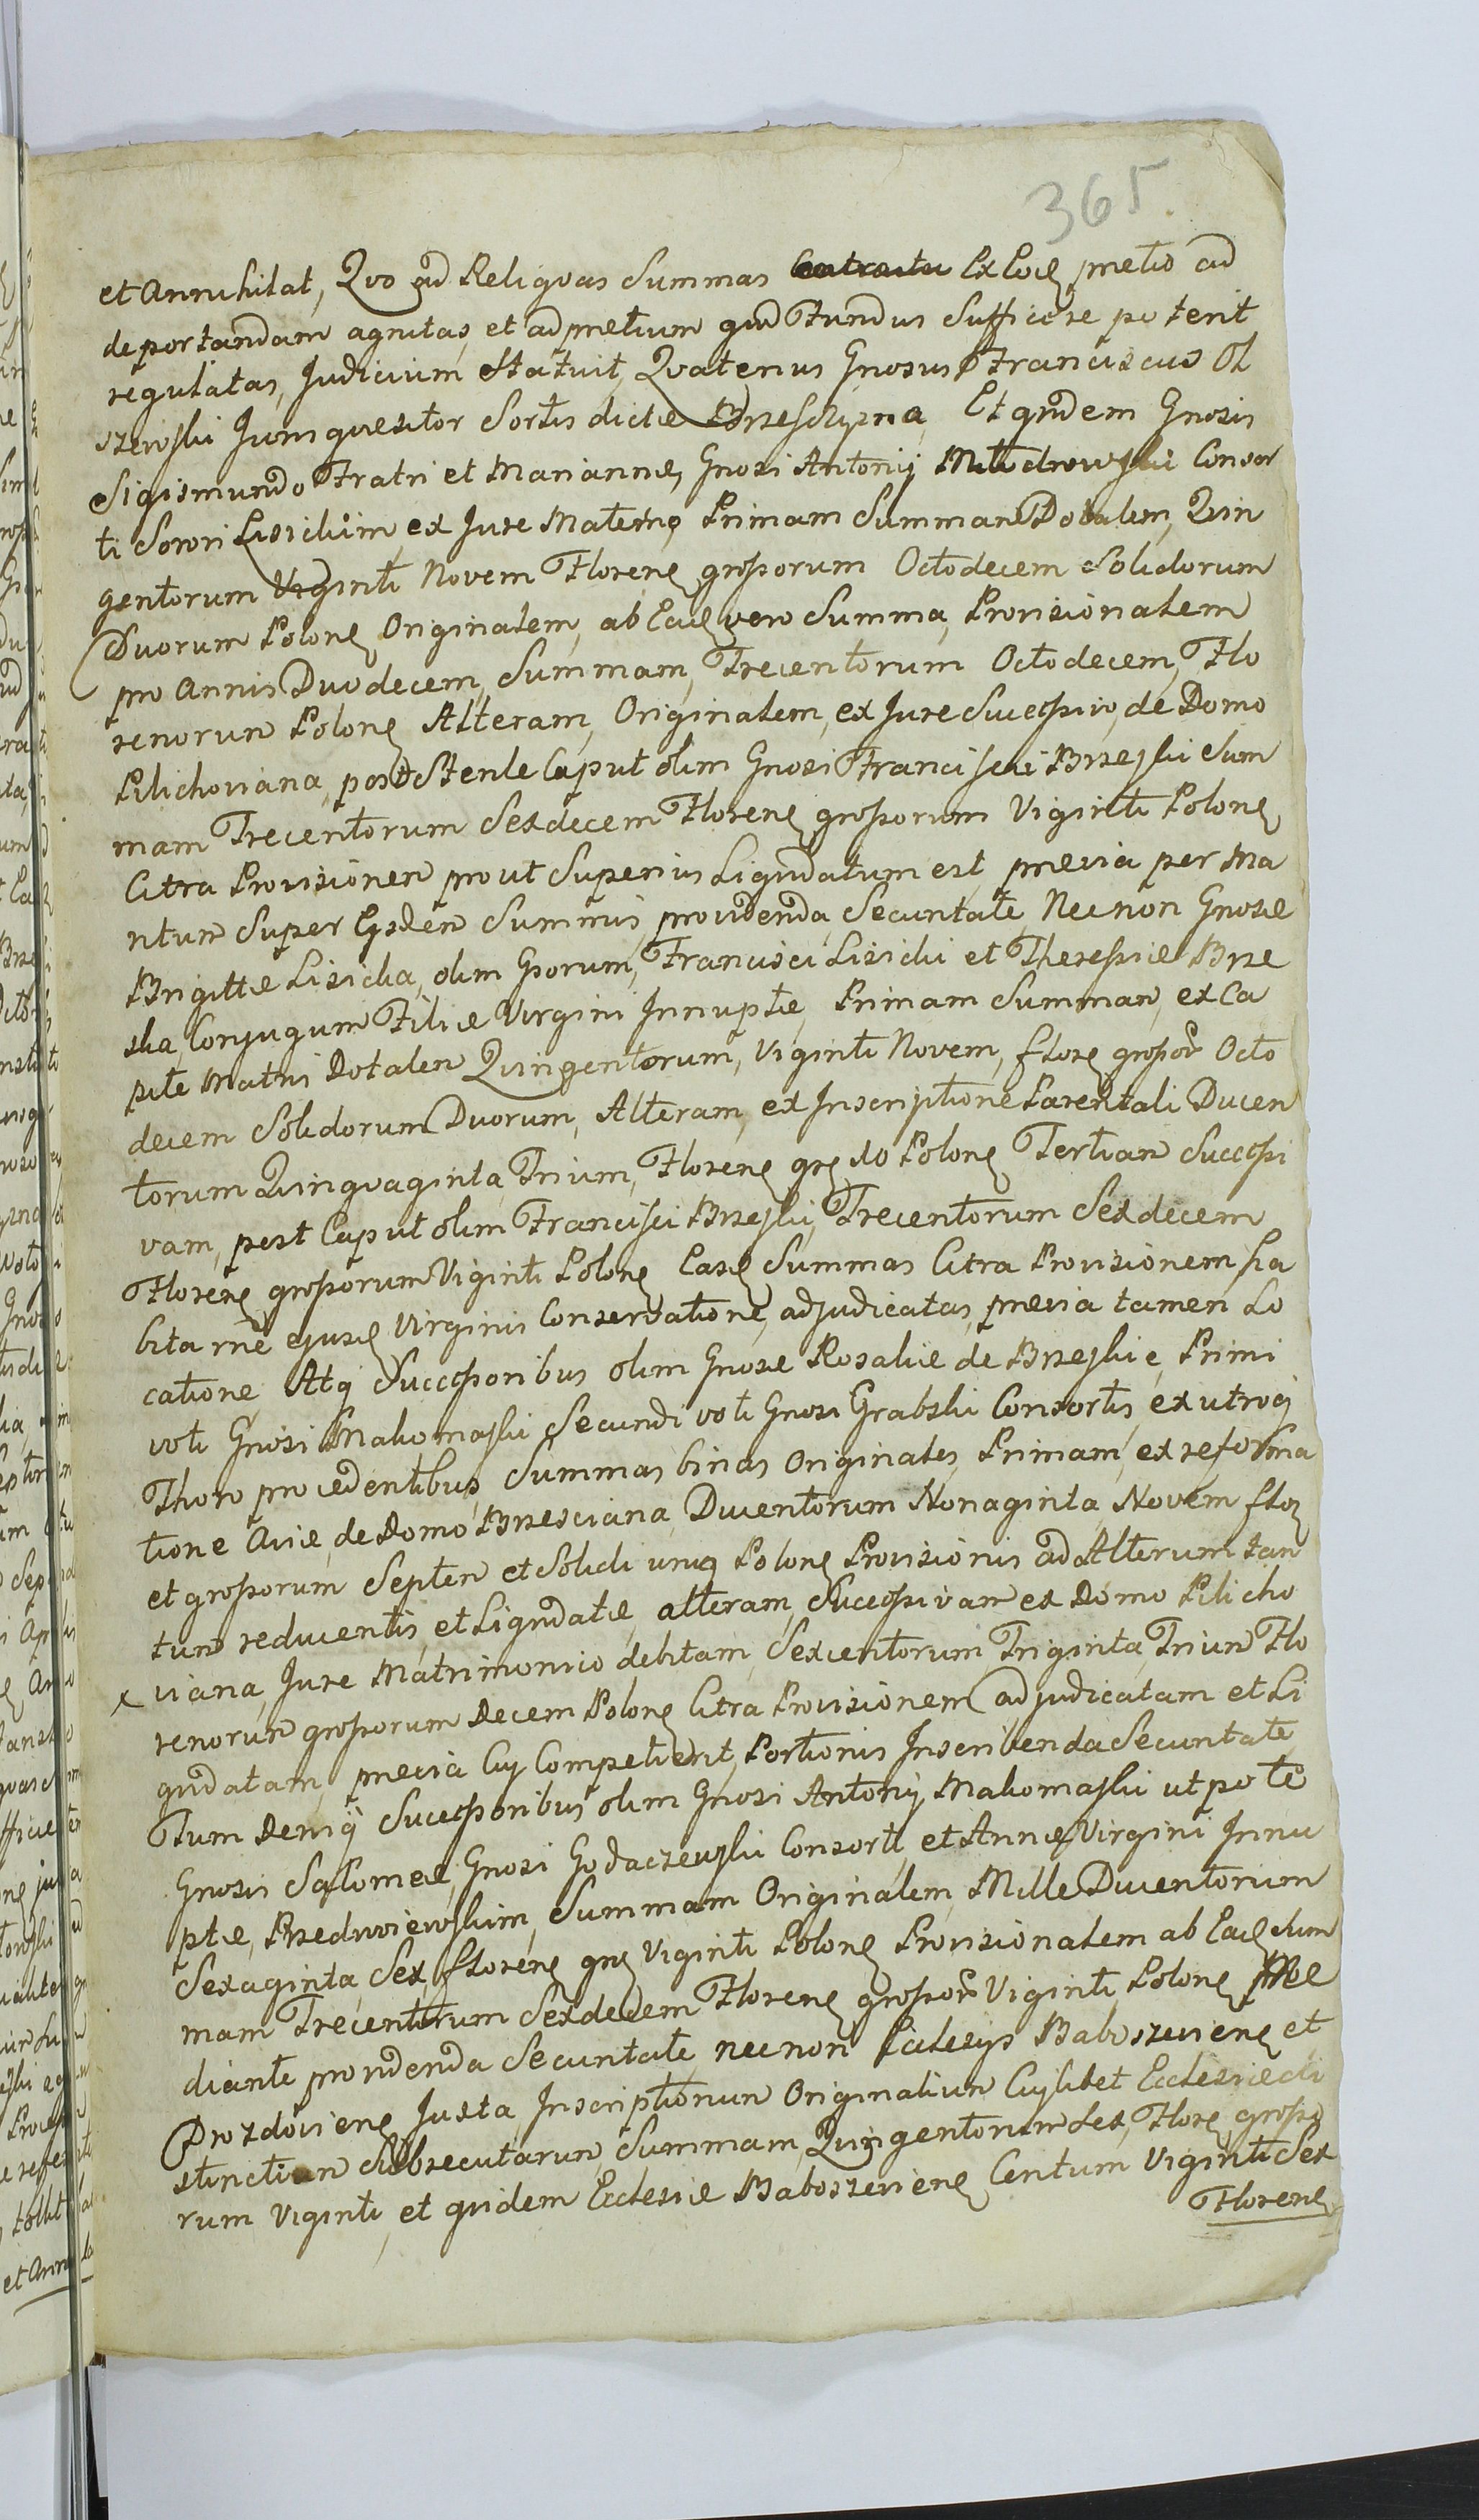 365
et Annihilat, Qvo ad Reliqvas Summas Ex Eoq pretio ad
deportandam agnitas, et ad pretium qvod Fundus Sufficere poterit
regulatas, Judicium Statuit, Qvatenus Gnosus Franciscus Ol
szewski Jurium qvæsitor Sortis dictæ Brzeschizna, Et qvidem Gnosis
Sigismundo Fratri et Mariannæ, Gnosi Antonij Consor
ti Sorori Lisickim, ex Jure Materno Primam Summam Dotalem, Qvin
gentorum Viginti Novem Florenq grossorum Octodecem Solidorum
Duorum Polonq Originalem, ab Eadq vero Summa, Provisionalem
pro Annis Duodecem, Summam, Trecentorum Octodecem, Flo
renorum Polonq Alteram, Originalem, ex Jure Successivo, de Domo
Pilichoviana, post Sterile Caput olim Gnosi Francisci Brzeski Sum
mam Trecentorum Sexdecem Florenq grossorum Viginti Polonq
Citra Provisionem prout Superius Liqvidatum est, prævia per Ma
ritum Super Eisdem Summis, providenda, Securitate, Necnon Gnosæ
Brigittæ Lisicka, olim Gsorum, Francisci Lisicki et Theressiæ Brze
ska, Conjugum Filiæ Virgini Innuptæ, Primam Summam, ex Ca
pite Matris Dotalem Qvingentorum, Viginti Novem, florq grossor Octo
decem Solidorum Duorum, Alteram, ex Inscriptione Parentali Ducen
torum Qvinqvaginta, Trium, Florenq grq 10 Polonq Tertiam Successi
vam, post Caput olim Francisci Brzeski, Trecentorum Sexdecem
Florenq grossorum Viginti Polonq Easq Summas Citra Provisionem, ha
bita rne ejusq Virginis Conservatione, adjudicatas, prævia tamen Lo
catione, Atq Successoribus olim Gnosæ Rosaliæ de Brzeskie, Primi
voti Gnosi Makomaski Secundi voti Gnosi Grabski Consortis, ex utroq
Thoro procedentibus, Summas binas Originales, Primam, ex reforma
tione Aviæ, de Domo Brzesciana, Ducentorum Nonaginta, Novem floq
et grossorum Septem et Solidi unig Polonq Provisionis ad Alterum tan
tum reducentis, et Liqvidatæ, alteram, Successivam ex Domo Pilicho
x viana, Jure Matrimonio debitam, Sexcentorum, Triginta, Trium Flo
renorum grossorum Decem Polonq Citra Provisionem, adjudicatam et Li
qvidatam, prævia Cuj Competierit, Portionis Inscribenda Securitate,
Tum Deniq Successoribus olim Gnosi Antonij Makomaski utpote
Gnosis Salomeæ, Gnosi Godaczewski Consorti, et Annæ Virgini Innu
ptæ, Przedwoiewskim, Summam Originalem, Mille Ducentorum
Sexaginta, Sex, florenq grq Viginti Polonq Provisionalem ab Eadq Sum
mam Trecentorum Sexdecem Florenq grossor Viginti Polonq Me
diante providenda Securitate, necnon Eclesijs Baboszevienq et
Drozdovienq Juxta, Inscriptionum Originalium Cujlibet Ecclesiæ di
stinctim Subsecutarum, Summam, Qvingentorum Sex, Florq grosso
rum Viginti, et qvidem Ecclesiæ Baboszevienq Centum Viginti Sex
Florenq